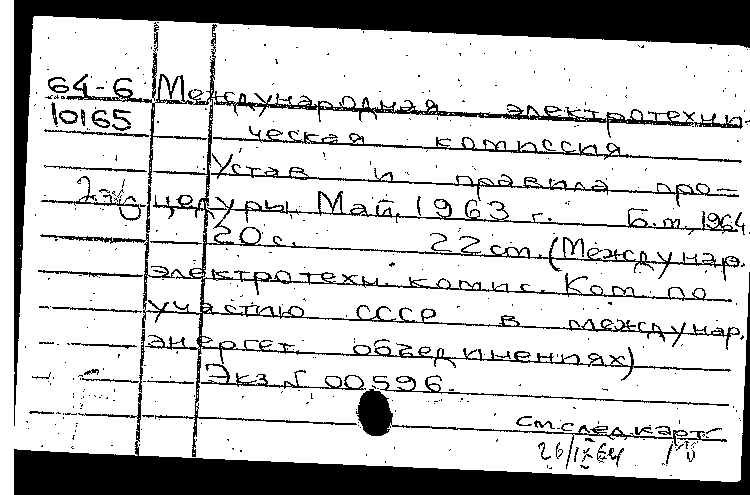 64-6 Международная электротехни-
10165 ческая комиссия.
Устав и правила про-
2 эк цедуры. Май, 1963 г. Б.м., 1964.
20 с. 22 см. (Междунар.
электротехн. комис. Ком. по
участию СССР в междунар.
энергет. объединениях)
Экз. № 00596.
См. след. карт.
26/IX 64